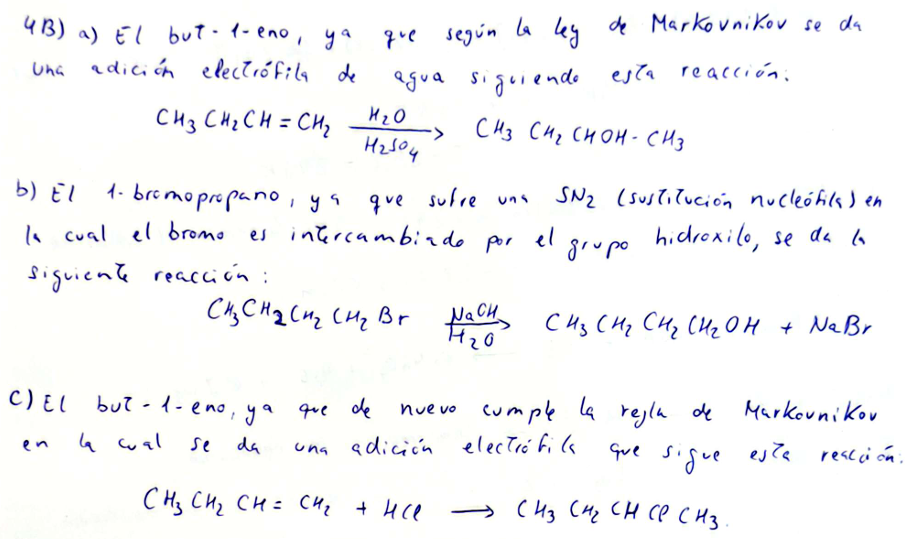 4B) a) El but-1-eno, ya que según la ley de Markovnikov se da
una adición electrófila de agua siguiendo esta reacción:
CH₃CH₂CH=CH₂ H₂O/H₂SO₄ → CH₃ CH₂ CHOH-CH₃
b) El 1-bromopropano, ya que sufre una SN₂ (sustitución nucleófila) en
la cual el bromo es intercambiado por el grupo hidroxilo, se da la
siguiente reacción:
CH₃CH₂CH₂CH₂Br NaOH/H₂O → CH₃CH₂CH₂CH₂OH + NaBr
c) El but-1-eno, ya que de nuevo cumple la regla de Markovnikov
en la cual se da una adición electrófila que sigue esta reacción:
CH₃CH₂CH=CH₂ + HCl → CH₃CH₂CHClCH₃.